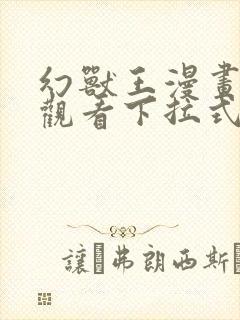 幻獸王漫畫
觀看下拉式
讓 弗朗西斯